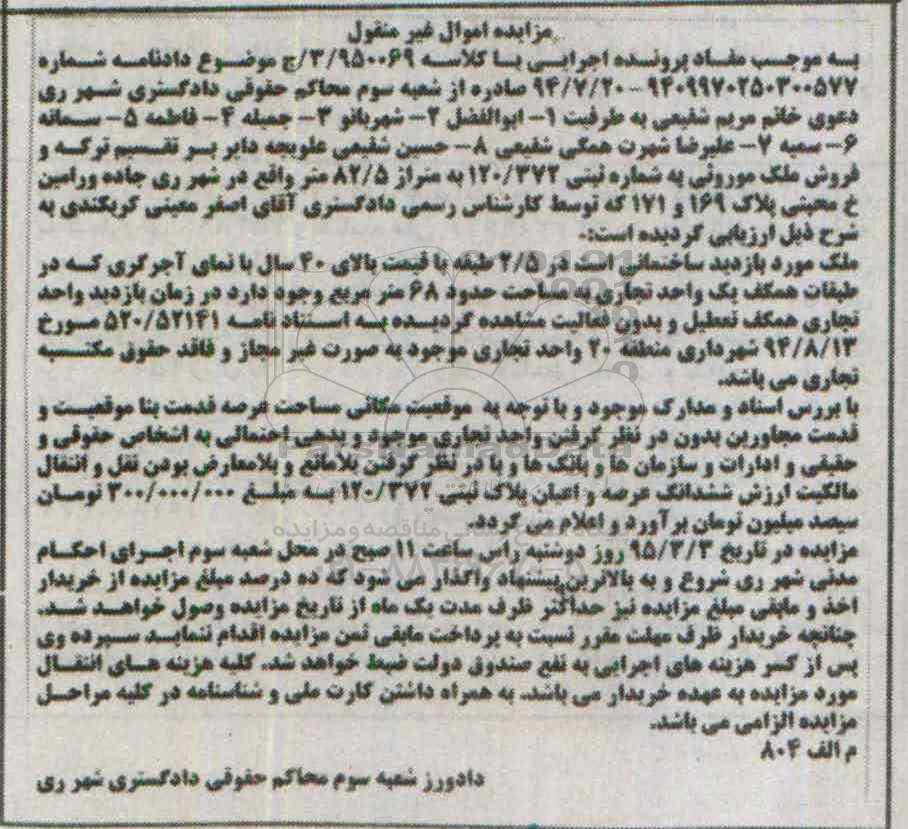 مزایده اموال غیر منقول
به موجب مفاد پرونده اجرایی با کلاسه ۳/۹۵۰۰۶۹/ج موضوع دادنامه شماره
۹۴۰۹۹۷۰۲۵۰۳۰۰۵۷۷ - ۹۴/۷/۲۰ صادره از شعبه سوم محاکم حقوقی دادگستری شهر ری
دعوی خانم مریم شفیعی به طرفیت ۱- ابوالفضل ۲- شهربانو ۳- جمیله ۴- فاطمه ۵- سمانه
۶- سمیه ۷- علیرضا شهرت همگی شفیعی ۸- حسین شفیعی علویجه دایر بر تقسیم ترکه و
فروش ملک موروثی به شماره ثبتی ۱۲۰/۳۷۲ به متراژ ۸۲/۵ متر واقع در شهر ری جاده ورامین
خ محبتی پلاک ۱۶۹ و ۱۷۱ که توسط کارشناس رسمی دادگستری آقای اصغر معینی کربکندی به
شرح ذیل ارزیابی گردیده است:-
ملک مورد بازدید ساختمانی است در ۲/۵ طبقه با قیمت بالای ۴۰ سال با نمای آجر گری که در
طبقات همکف یک واحد تجاری به مساحت حدود ۶۸ متر مربع وجود دارد در زمان بازدید واحد
تجاری همکف تعطیل و بدون فعالیت مشاهده گردیده به استناد نامه ۵۲۰/۵۲۱۴۱ مورخ
۹۴/۸/۱۳ شهرداری منطقه ۲۰ واحد تجاری موجود به صورت غیر مجاز و فاقد حقوق مکتسبه
تجاری می باشد.
با بررس اسناد و مدارک موجود و با توجه به موقعیت مکانی مساحت عرصه قدمت بنا موقعیت و
قدمت مجاورین بدون در نظر گرفتن واحد تجاری موجود و بدهی احتمالی به اشخاص حقوقی و
حقیقی و ادارات و سازمان ها و بانک ها و با در نظر گرفتن بلامانع و بلامعارض بودن نقل و انتقال
مالکیت ارزش ششدانگ عرصه و اعیان پلاک ثبتی ۱۲۰/۳۷۲ به مبلغ ۳۰۰/۰۰۰/۰۰۰ تومان
سیصد میلیون تومان برآورد و اعلام می گردد.
مزایده در تاریخ ۹۵/۳/۳ روز دوشنبه راس ساعت ۱۱ صبح در محل شعبه سوم اجرای احکام
مدنی شهر ری شروع و به بالاترین پیشنهاد واگذار می شود که ده درصد مبلغ مزایده از خریدار
اخذ و مابقی مبلغ مزایده نیز حداکثر ظرف مدت یک ماه از تاریخ مزایده وصول خواهد شد.
چنانچه خریدار ظرف مهلت مقرر نسبت به پرداخت مابقی ثمن مزایده اقدام ننماید سپرده وی
پس از کسر هزینه های اجرایی به نفع صندوق دولت ضبط خواهد شد. کلیه هزینه های انتقال
مورد مزایده به عهده خریدار می باشد. به همراه داشتن کارت ملی و شناسنامه در کلیه مراحل
مزایده الزامی می باشد.
م الف ۸۰۴
دادورز شعبه سوم محاکم حقوقی دادگستری شهر ری